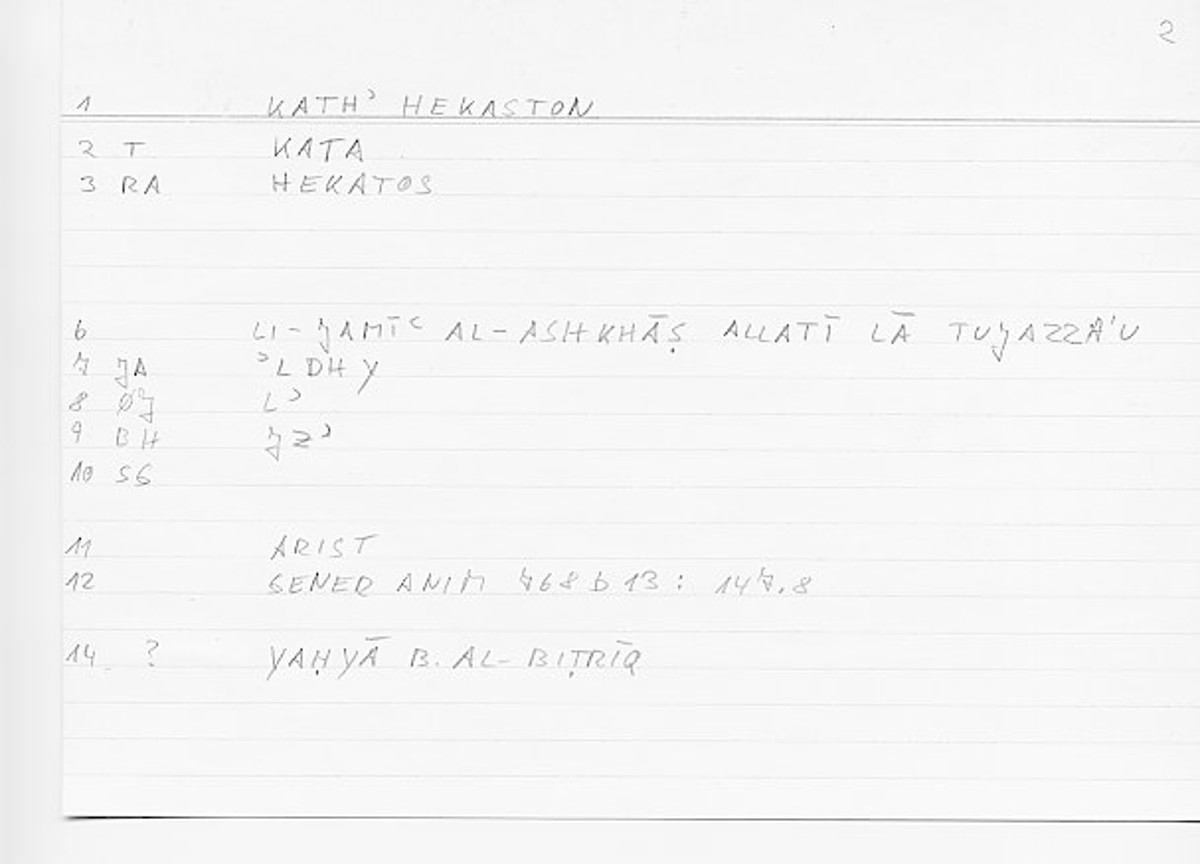 2
1 KATHʾ HEKASTON
2 T KATA
3 RA HEKATOS
6 LI-JAMĪʿ AL-ASHKHĀṢ ALLATĪ LĀ TUJAZZĀʾU
7 JA ʾLDHY
8 ØJ Lʾ
9 BH JZʾ
10 SG
11 ARIST
12 GENER ANIM 768 b 13 : 147.8
14 ? YAḤYĀ B. AL-BIṬRĪQ